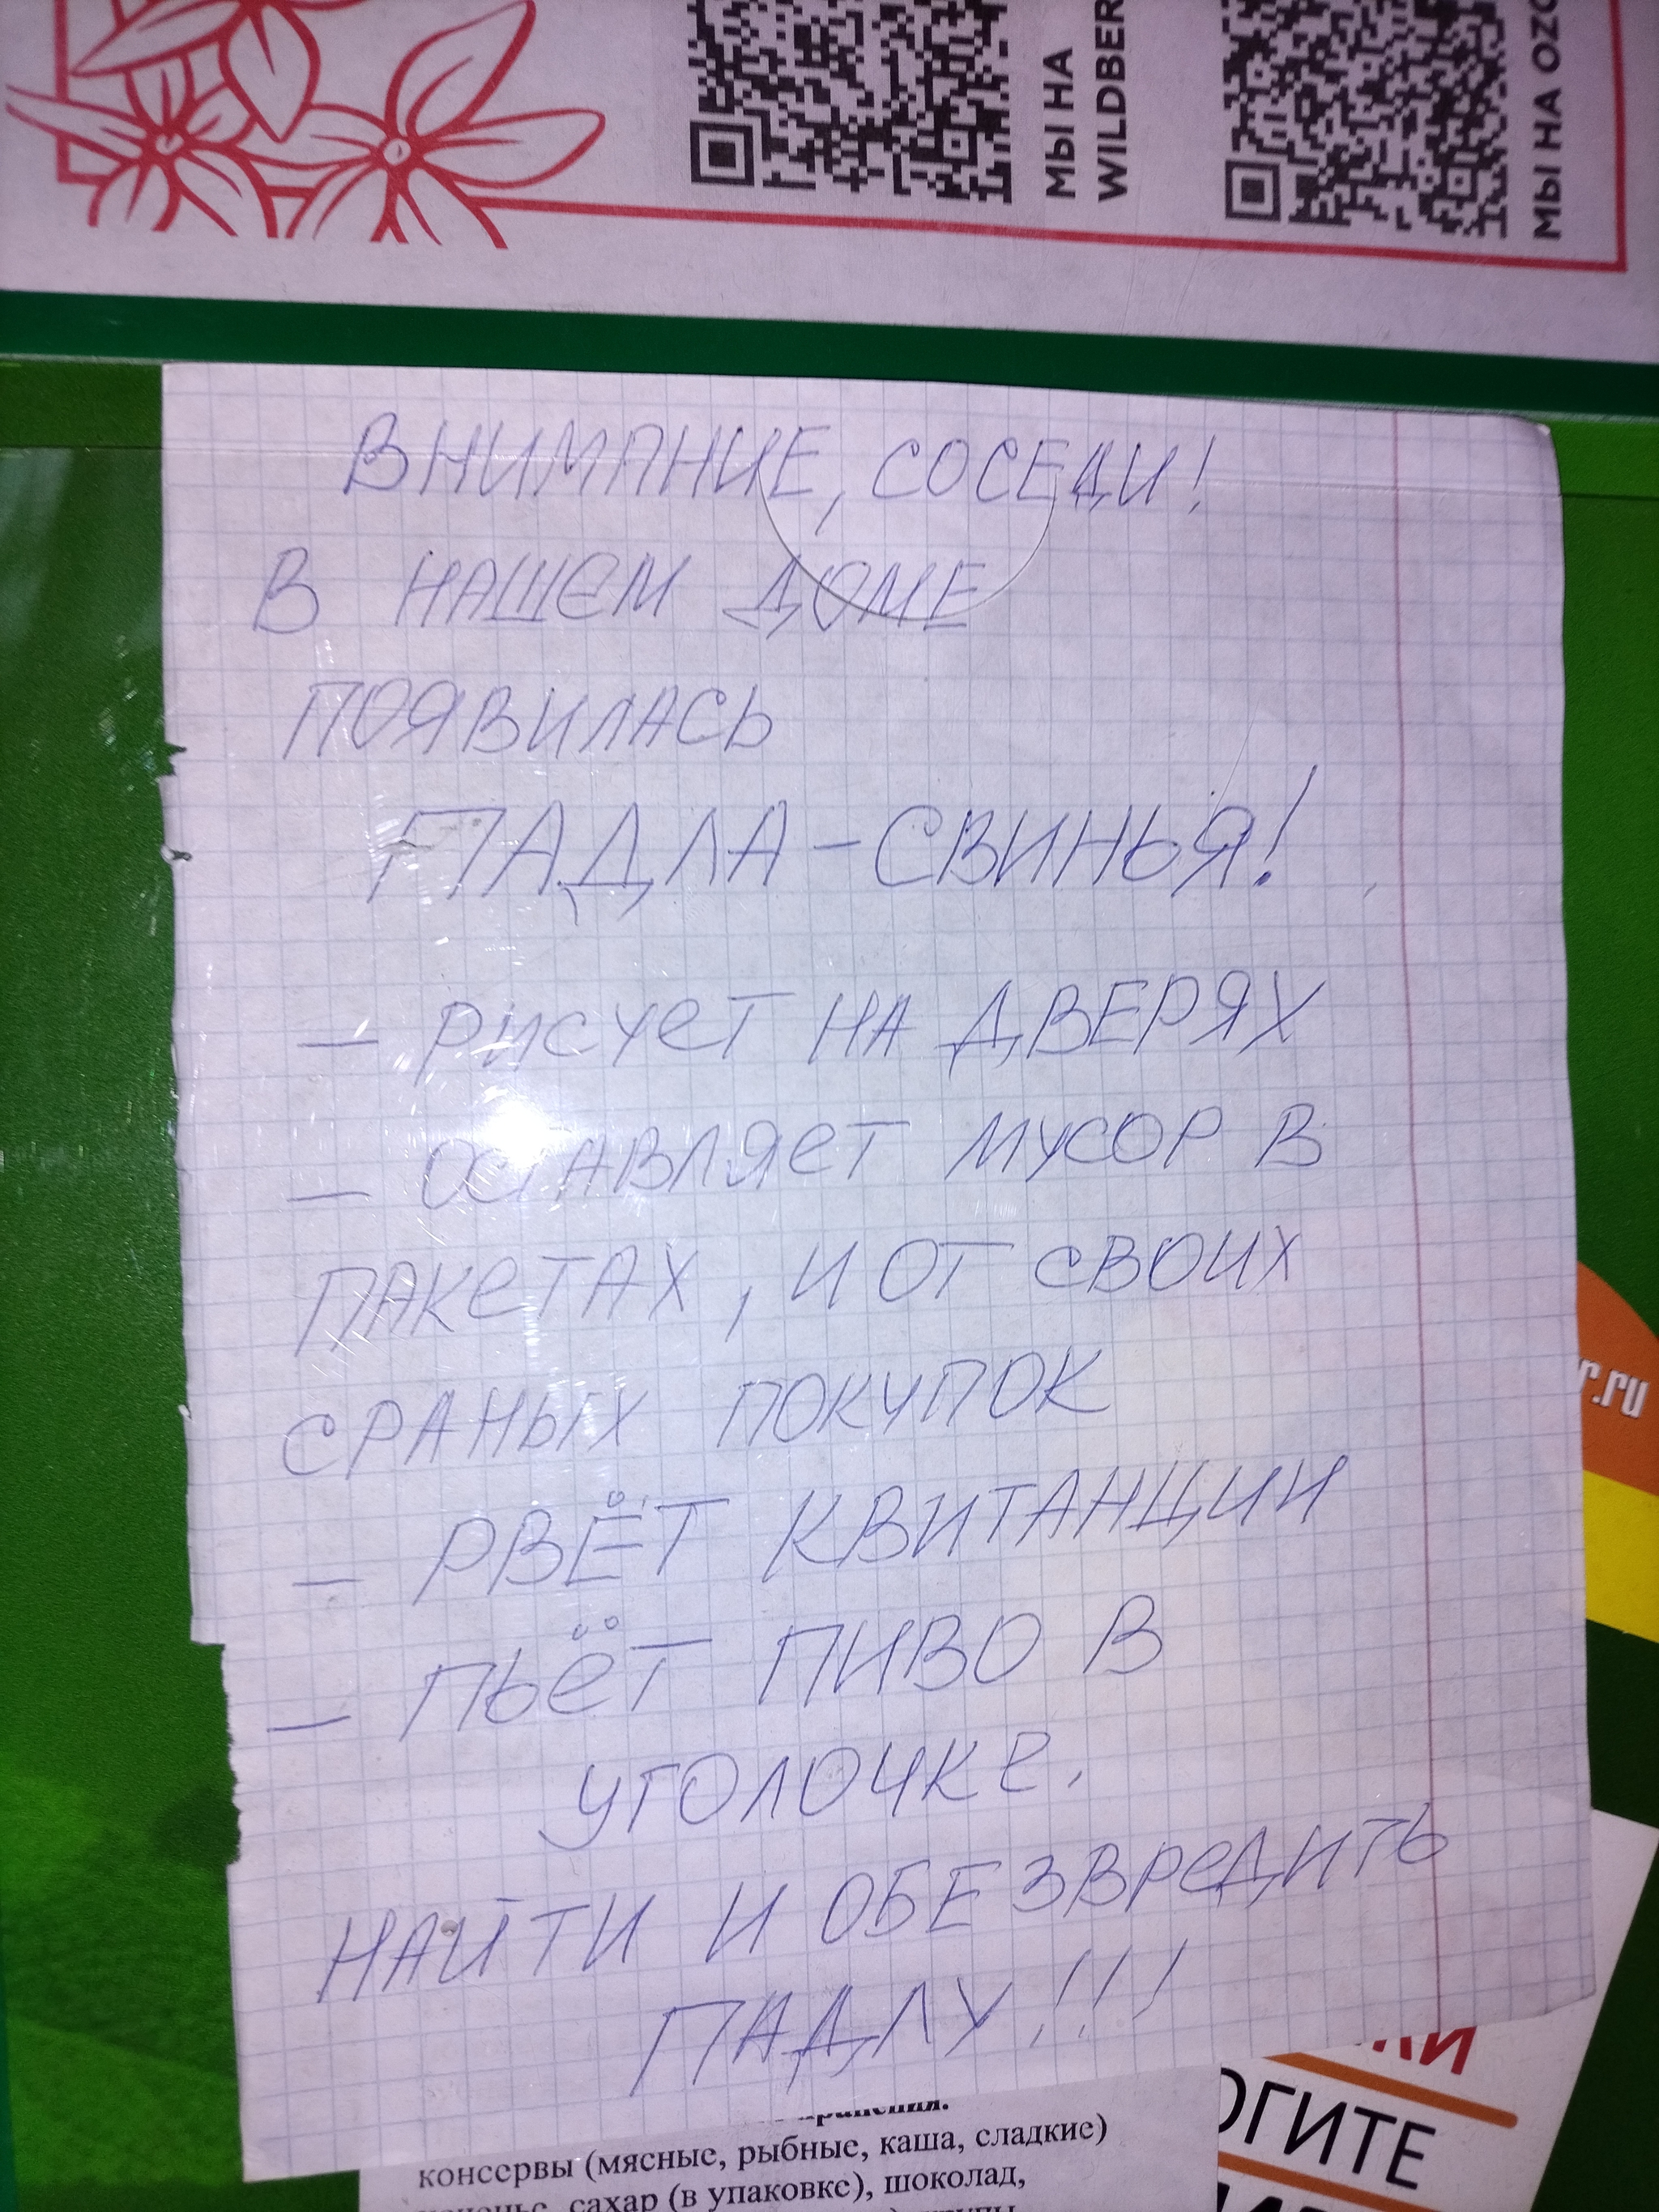 МЫ НА
WILDBER
МЫ НА OZO
ВНИМАНИЕ, СОСЕДИ!
В НАШЕМ ДОМЕ
ПОЯВИЛАСЬ
ПАДЛА-СВИНЬЯ!
- РИСУЕТ НА ДВЕРЯХ
- ОСТАВЛЯЕТ МУСОР В
ПАКЕТАХ, И ОТ СВОИХ
СРАНЫХ ПОКУПОК
- РВЁТ КВИТАНЦИИ
- ПЬЁТ ПИВО В
УГОЛОЧКЕ.
НАЙТИ И ОБЕЗВРЕДИТЬ
ПАДЛУ!!!
r.ru
ОГИТЕ
консервы (мясные, рыбные, каша, сладкие)
сахар (в упаковке), шоколад,